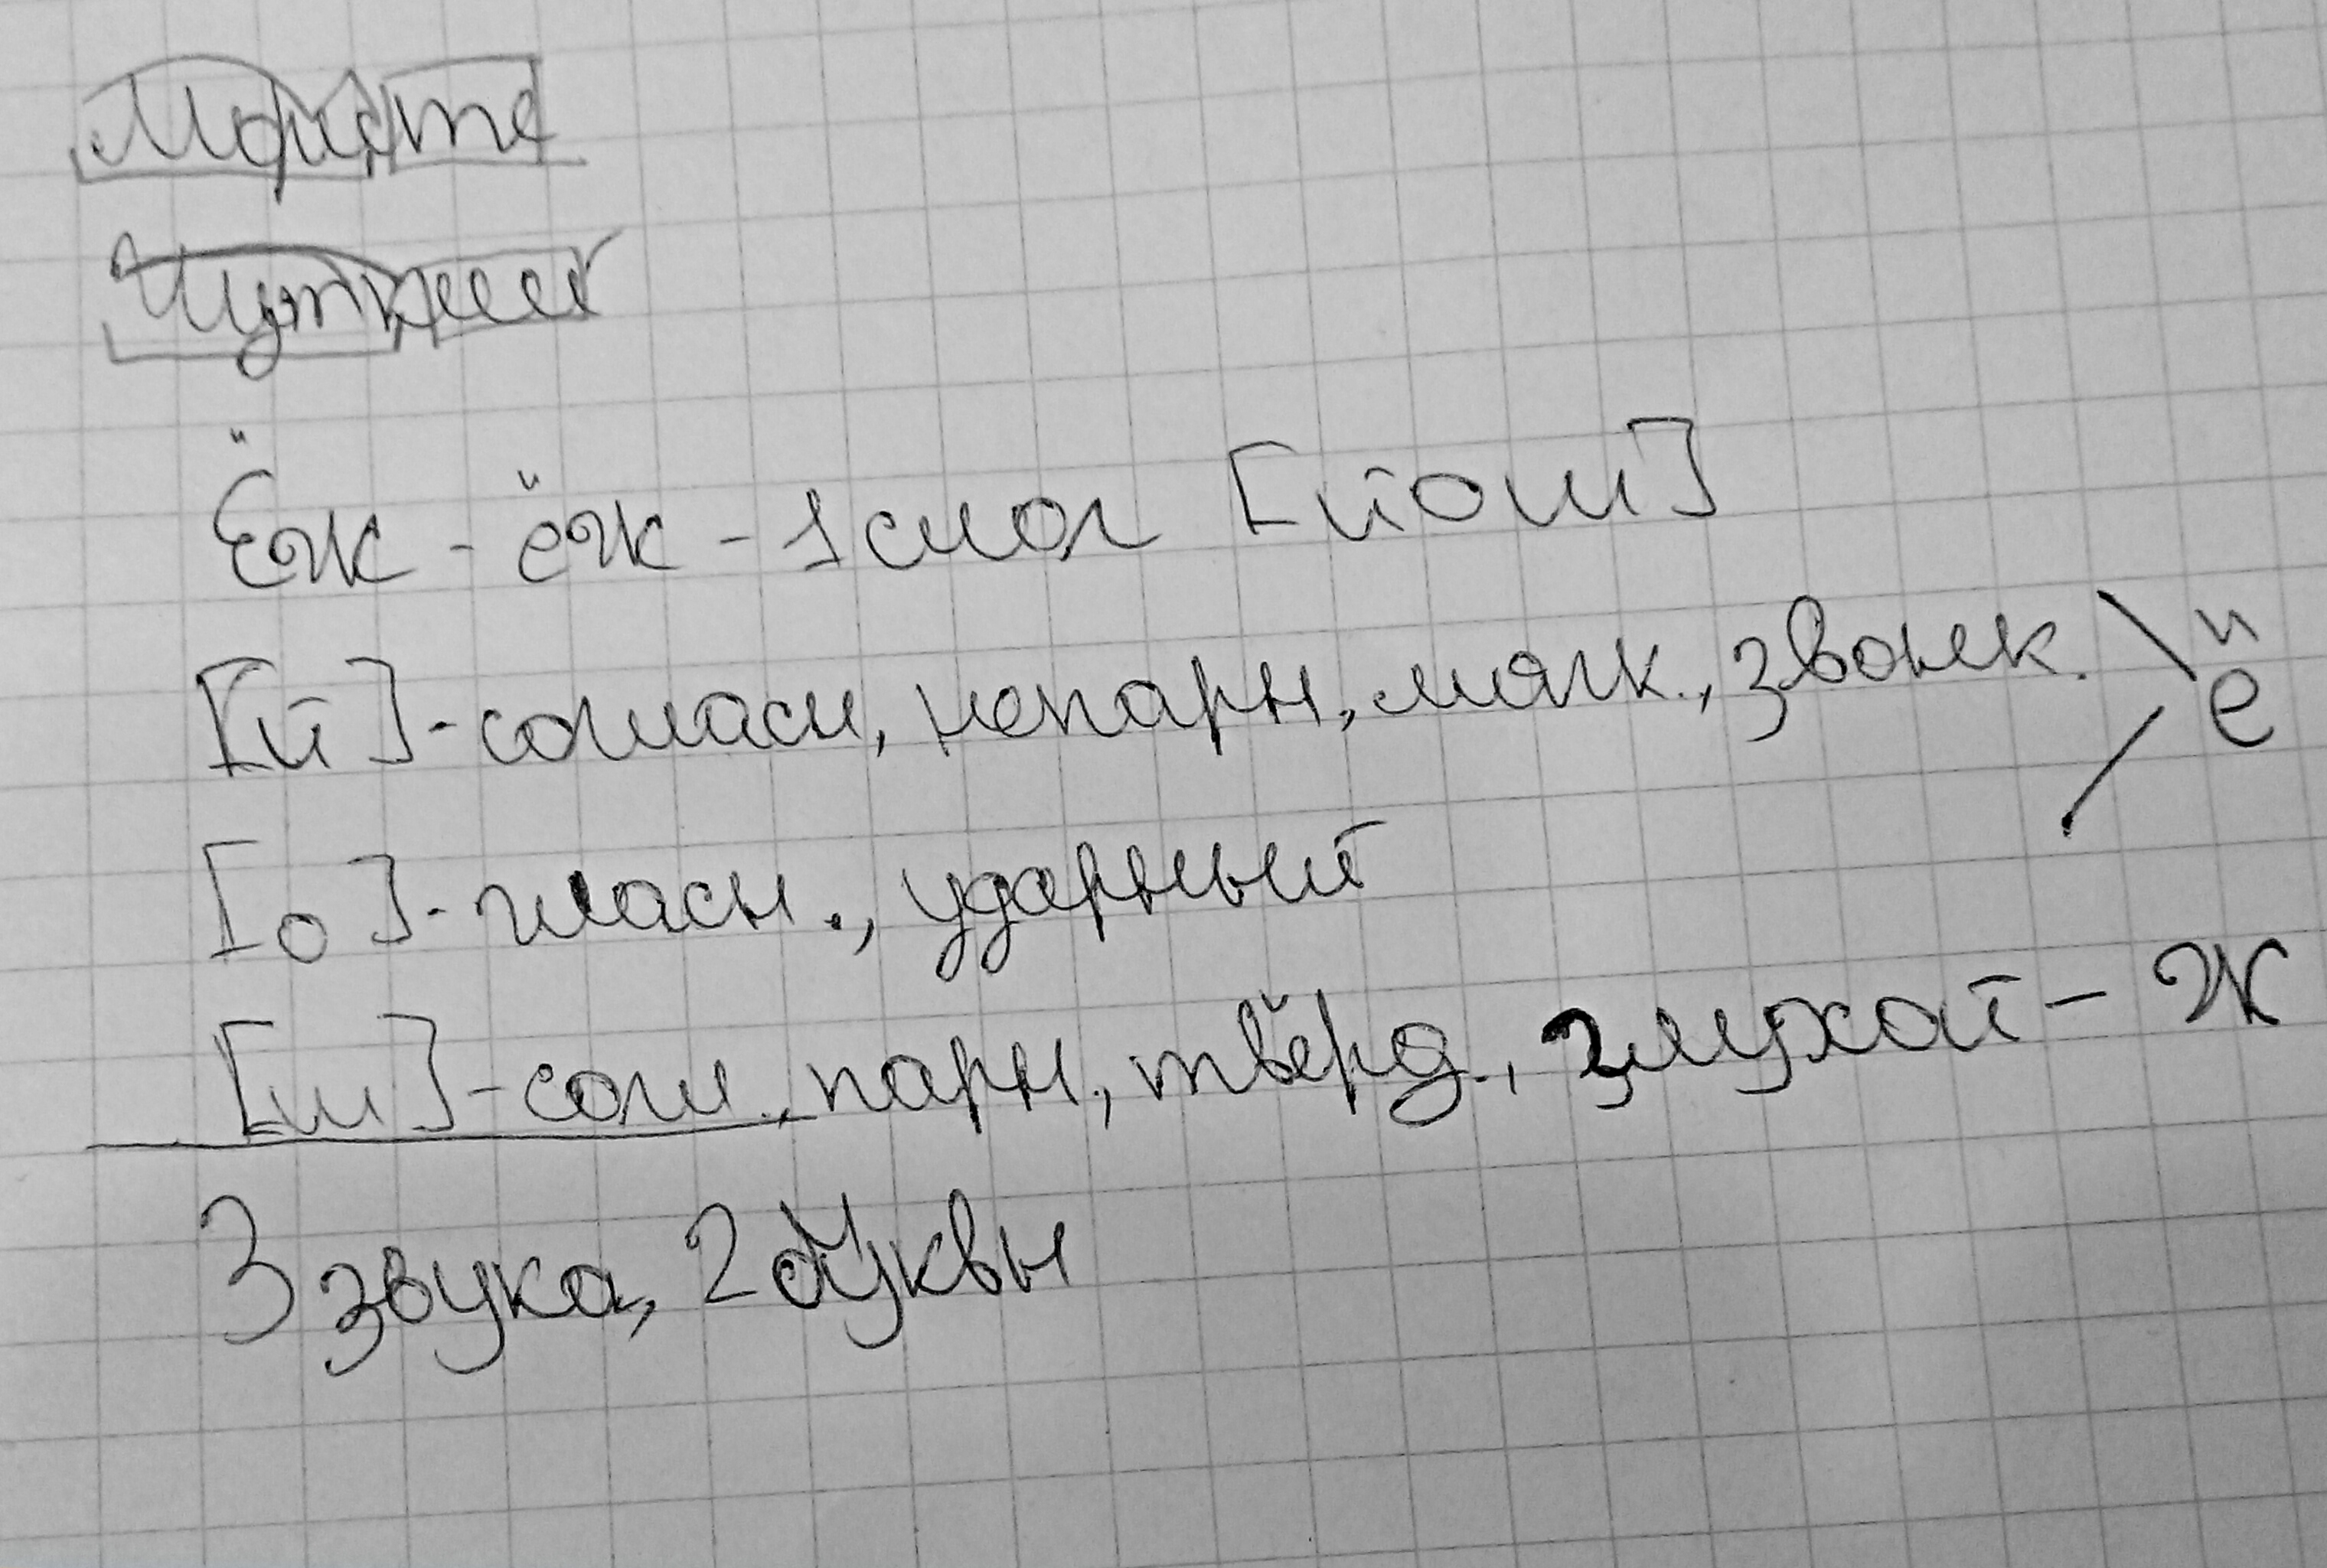 Чуткий
Ёж - ёж - 1 слог [йош]
[й] - согласн, непарн, мягк., звонк. \ ё
[о] - гласн., ударный /
[ш] - согл., парн, твёрд., глухой - ж
3 звука, 2 буквы